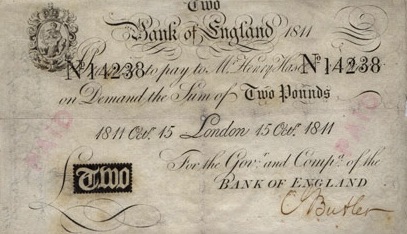 Two
Bank of England 1811
Nº14238 to pay to Mr. Henry Hase Nº14238
on Demand the Sum of Two Pounds
1811 Octr. 15 London 15 Octr. 1811
For the Govr. and Compa. of the
£ Two
BANK OF ENGLAND
C Butler